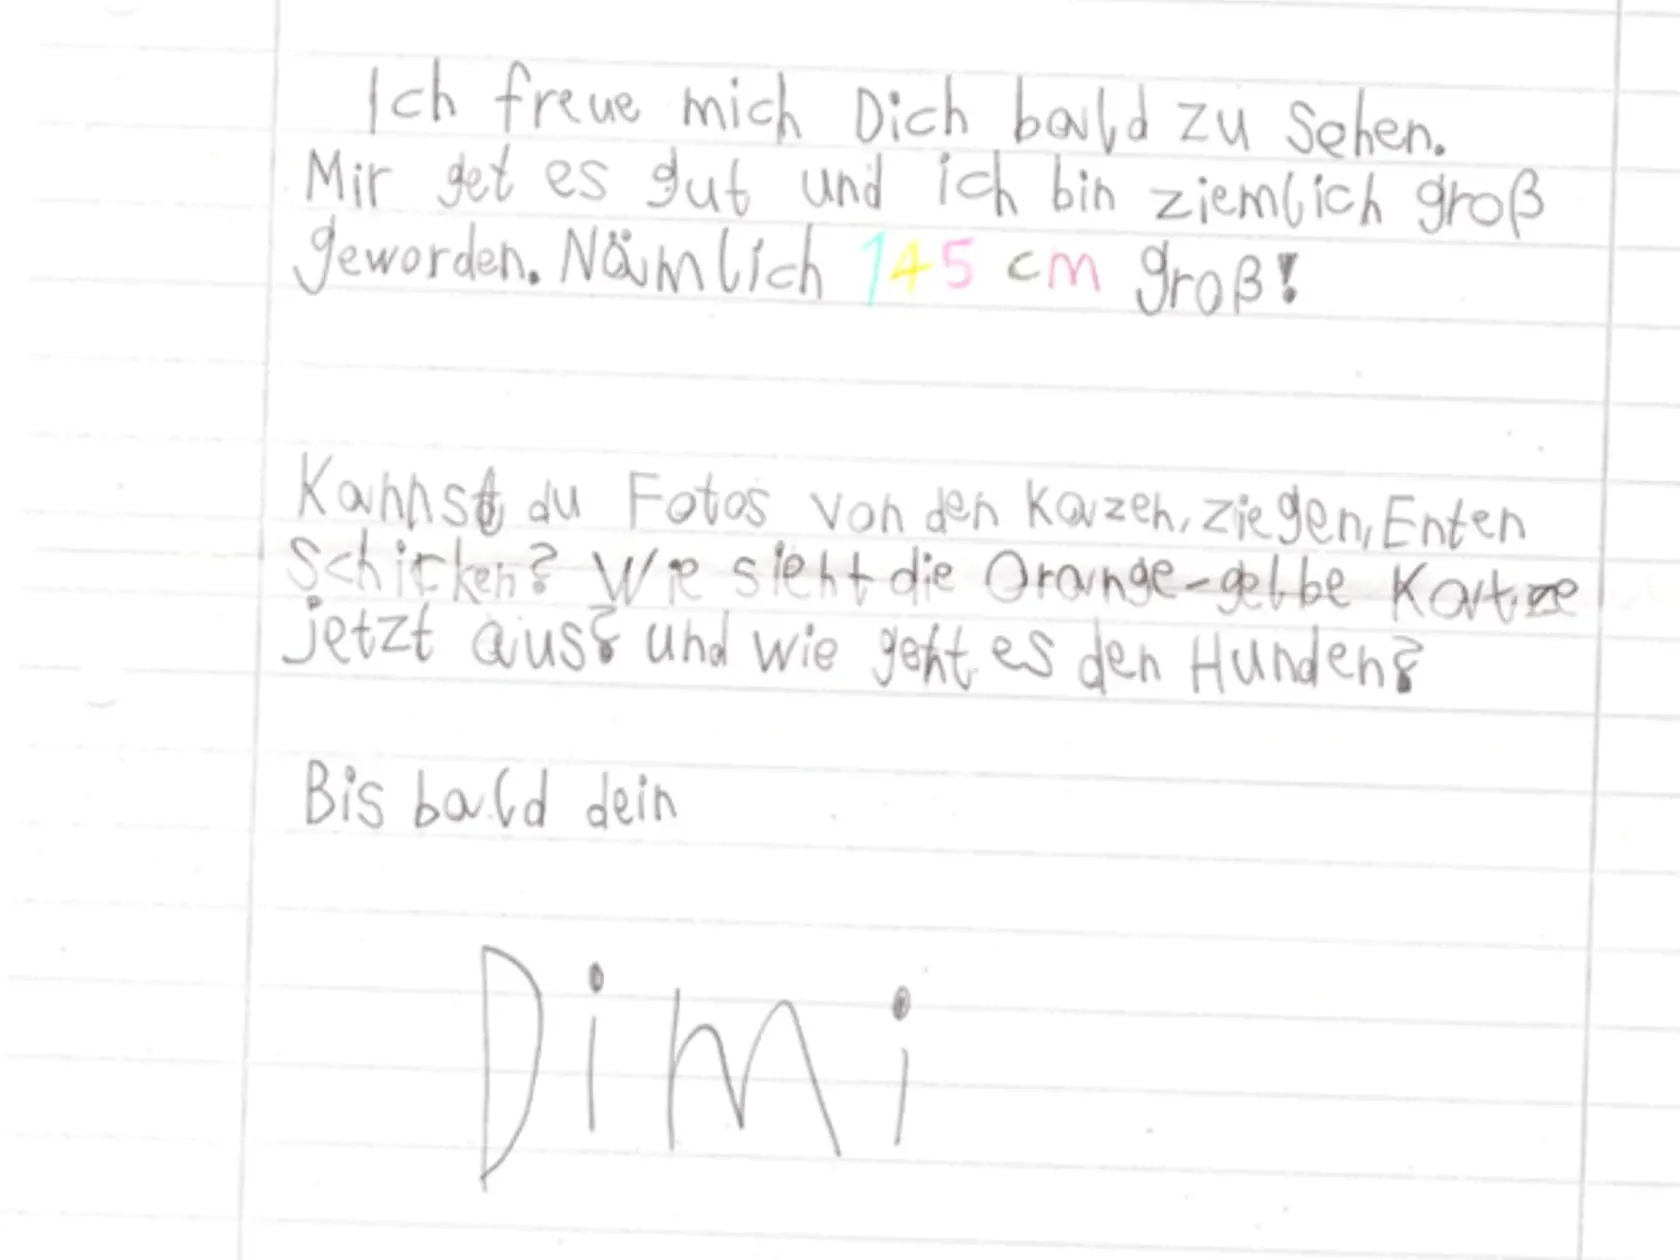 Ich freue mich Dich bald zu Sehen.
Mir get es gut und ich bin ziemlich groß
geworden. Nämlich 145 cm groß!
Kannst du Fotos von den Kazen, ziegen, Enten
Schicken? Wie sieht die Orange-gelbe Katze
jetzt aus? und wie geht es den Hunden?
Bis bald dein
Dimi